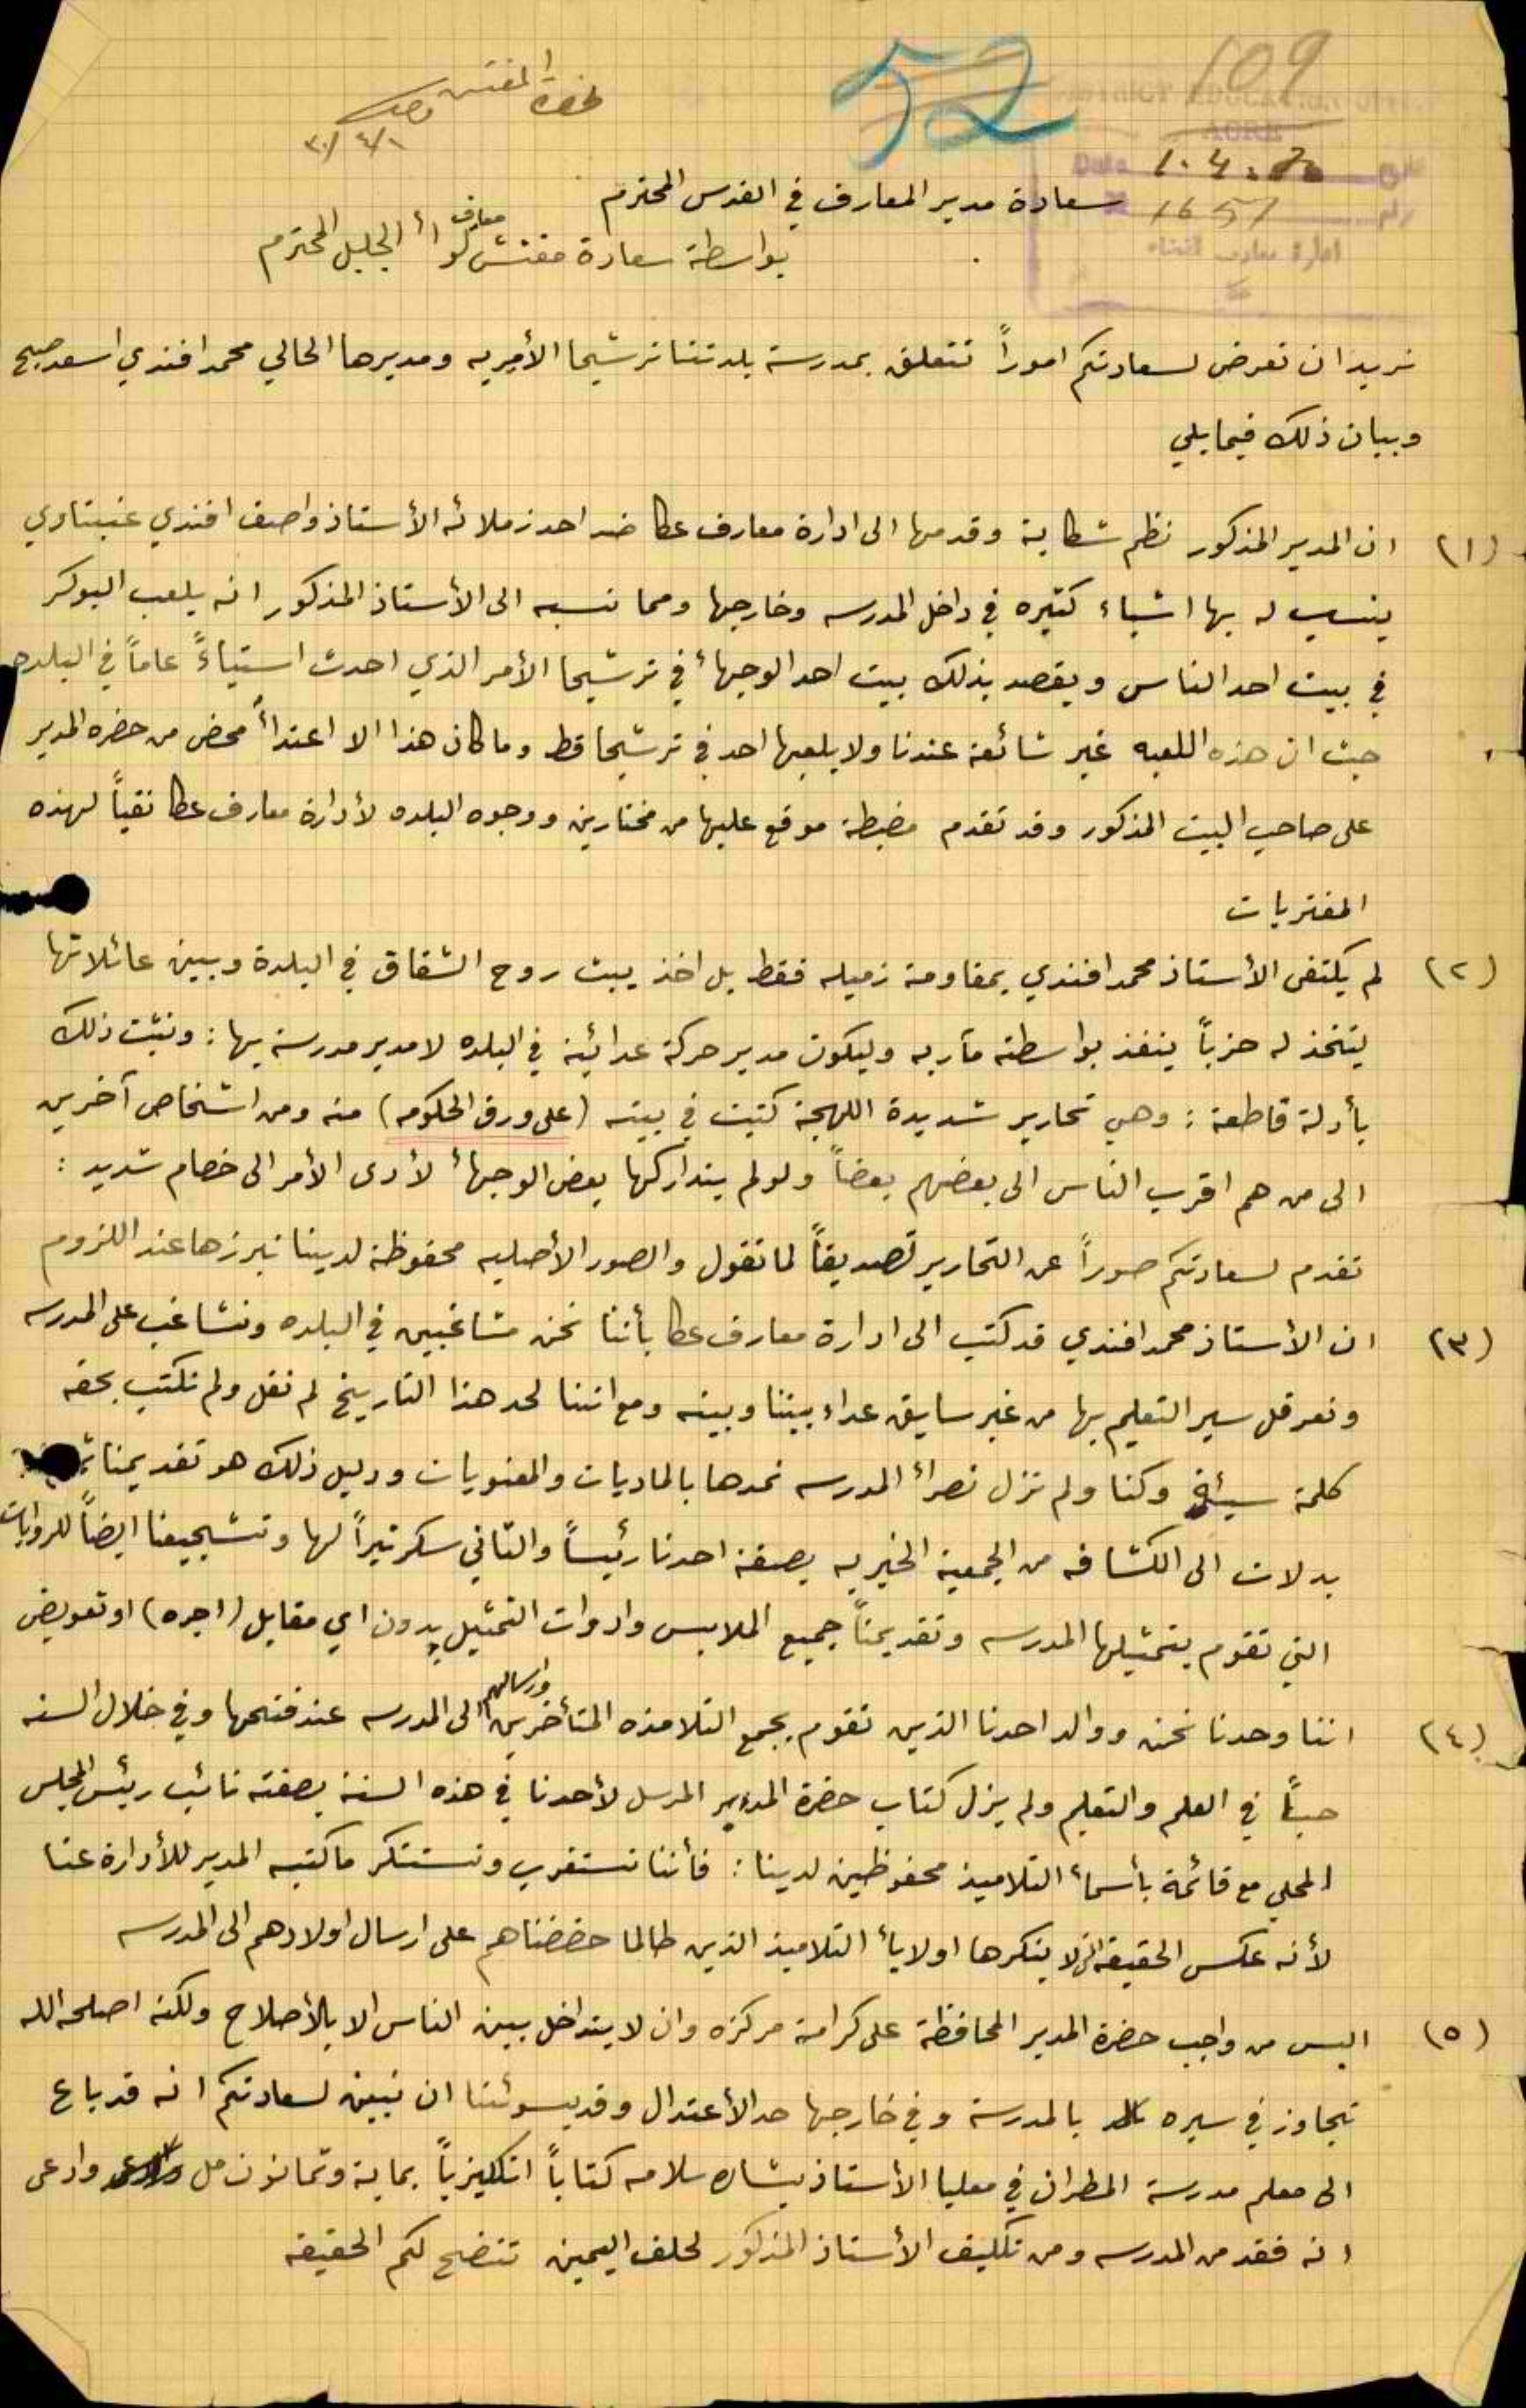 حضرة المفتش
٣٠/٤/١
52
109
DISTRICT EDUCATION OFFICE
ACRE
Date 1.4.30
رقم 1657
ادارة معارف القضاء
سعادة مدير المعارف في القدس المحترم
بواسطة سعادة مفتش معارف لواء الجليل المحترم
نريد ان نعرض لسعادتكم اموراً تتعلق بمدرسة بلدتنا ترشيحا الأميريه ومديرها الحالي محمد افندي اسعد صبح
وبيان ذلك فيما يلي
(١) ان المدير المذكور نظم شكاية وقدمها الى ادارة معارف عكا ضد احد زملائه الأستاذ واصف افندي عنبتاوي
ينسب له بها اشياء كثيره في داخل المدرسه وخارجها ومما نسبه الى الأستاذ المذكور انه يلعب البوكر
في بيت احد الناس ويقصد بذلك بيت احد الوجهأ في ترشيحا الأمر الذي احدث استياءً عاماً في البلده
حيث ان هذه اللعبه غير شائعة عندنا ولا يلعبها احد في ترشيحا قط وما كان هذا الا اعتدأً محض من حضرة المدير
على صاحب البيت المذكور وقد تقدم مضبطة موقع عليها من مختارين ووجوه البلده لأدارة معارف عكا نفياً لهذه
المفتريات
(٢) لم يكتفى الأستاذ محمد افندي بمقاومة زميله فقط بل اخذ يبث روح الشقاق في البلدة وبين عائلاتها
ليتخذ له حزباً ينفذ بواسطته مآربه وليكون مدير حركة عدائية في البلده لا مدير مدرسة بها : ونثبت ذلك
بأدلة قاطعة : وهي تحارير شديدة اللهجة كتبت في بيته (على ورق الحكومه) منه ومن اشخاص آخرين
الى من هم اقرب الناس الى بعضهم بعضاً ولو لم يتداركها بعض الوجهأ لأدى الأمر الى خصام شديد :
نقدم لسعادتكم صوراً عن التحارير تصديقاً لما نقول والصور الأصليه محفوظة لدينا نبرزها عند اللزوم
(٣) ان الأستاذ محمد افندي قد كتب الى ادارة معارف عكا بأننا نحن مشاغبين في البلده ونشاغب على المدرسه
ونعرقل سير التعليم بها من غير سابق عداء بيننا وبينه ومع اننا لحد هذا التاريخ لم نقل ولم نكتب بحقه
كلمة سيئة وكنا ولم نزل نصرأ المدرسه نمدها بالماديات والمعنويات ودليل ذلك هو تقديمنا
بدلات الى الكشافه من الجمعية الخيريه بصفة احدنا رئيساً والثاني سكرتيراً لها وتشجيعنا ايضاً للروايات
التي تقوم بتمثيلها المدرسه وتقديمناً جميع الملابس وادوات التمثيل بدون اي مقابل (اجره) او تعويض
(٤) اننا وحدنا نحن ووالد احدنا الذين نقوم بجمع التلامذه المتأخرين وارسالهم الى المدرسه عند فتحها وفي خلال السنه
حباً في العلم والتعليم ولم يزل كتاب حضرة المدير المرسل لأحدنا في هذه السنة بصفته نائب رئيس المجلس
المحلي مع قائمة بأسمأ التلاميذ محفوظين لدينا : فأننا نستغرب ونستنكر ما كتبه المدير للأدارة عنا
لأنه عكس الحقيقه التي لا ينكرها اوليأ التلاميذ الذين طالما حضضناهم على ارسال اولادهم الى المدرسه
(٥) اليس من واجب حضرة المدير المحافظة على كرامة مركزه وان لا يتداخل بين الناس الا بالأصلاح ولكنه اصلحه الله
تجاوز في سيره بالمدرسة وفي خارجها حد الأعتدال وقد يسوئنا ان نبين لسعادتكم انه قد باع
الى معلم مدرسة المطران في معليا الأستاذ بشاره سلامه كتاباً انكليزياً بماية وثمانون مل وادعى
انه فقد من المدرسه ومن تكليف الأستاذ المذكور لحلف اليمين تتضح لكم الحقيقه